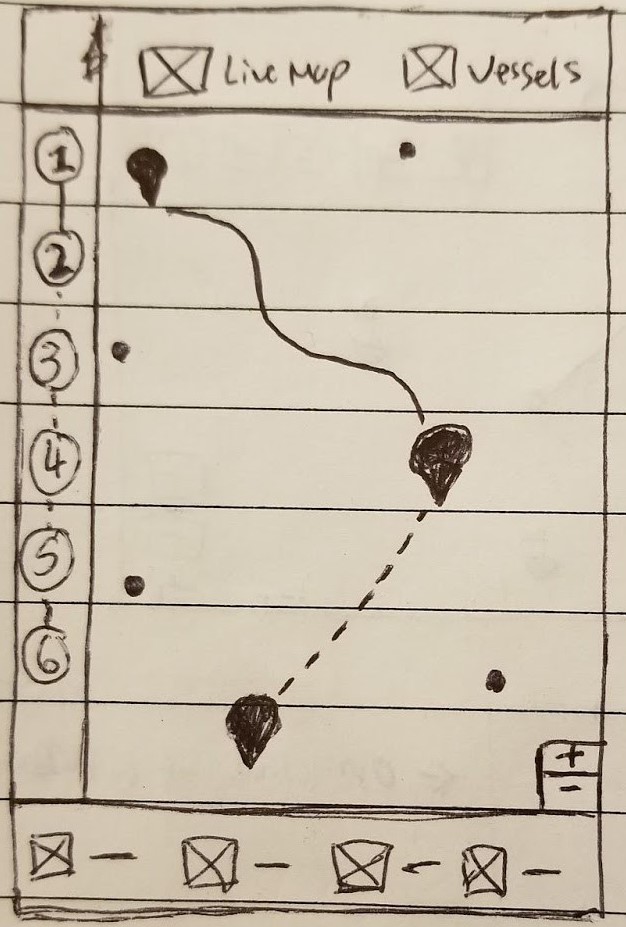 Live Map Vessels
1
2
3
4
5
6
+
-